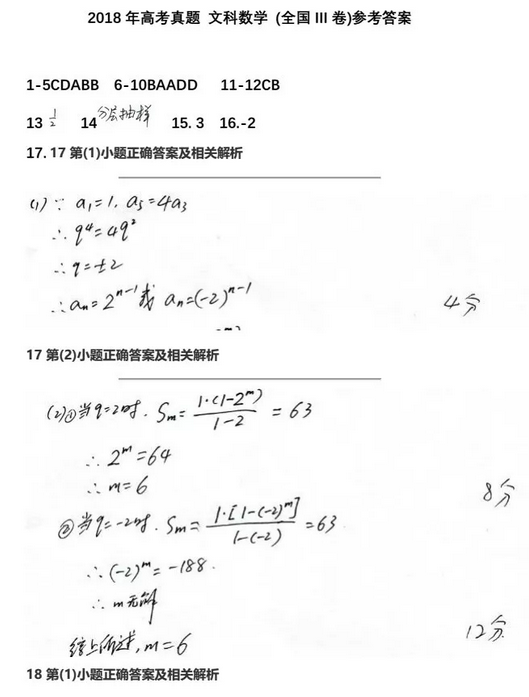 2018年高考真题 文科数学 (全国III卷)参考答案
1-5CDABB 6-10BAADD 11-12CB
13 1/2 14分层抽样 15. 3 16.-2
17. 17 第(1)小题正确答案及相关解析
(1) ∵ a₁=1, a₅=4a₃
∴ q⁴=4q²
∴ q=±2
∴ aₙ=2ⁿ⁻¹或 aₙ=(-2)ⁿ⁻¹ 4分
17 第(2)小题正确答案及相关解析
(2)①当q=2时. Sₘ= 1·(1-2ᵐ)/(1-2) = 63
∴ 2ᵐ=64
∴ m=6 8分
②当q=-2时. Sₘ= 1·[1-(-2)ᵐ]/(1-(-2)) =63
∴ (-2)ᵐ=-188.
∴ m无解
综上所述, m=6 12分
18 第(1)小题正确答案及相关解析